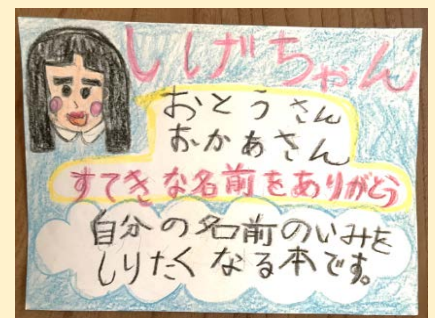 しげちゃん
おとうさん
おかあさん
すてきな名前をありがとう
自分の名前のいみを
しりたくなる本です。